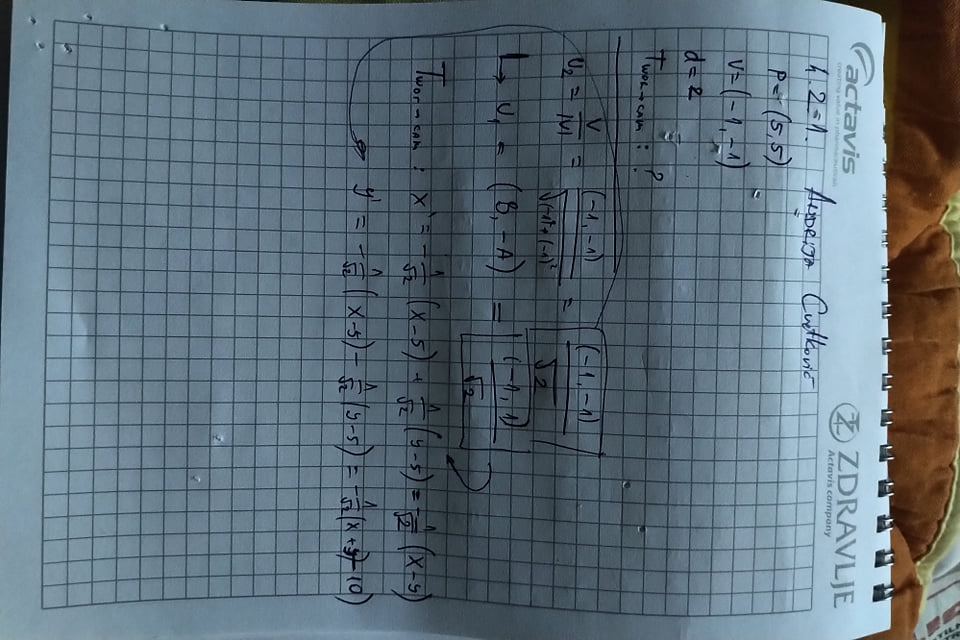 actavis
creating value in pharmaceuticals
ZDRAVLJE
Actavis company
4.2=1. Андрија Cvetković
P = (5,5)
V = (-1, -1)
d = 2
T wor→cam : ?
U₂ = V/|V| = (-1, -1)/√((-1)²+(-1)²) = (-1, -1)/√2
↳ U₁ = (B, -A) = (-1, 1)/√2
T wor→cam : x' = -1/√2 (x-5) + 1/√2 (y-5) = -1/√2 (x-y)
y' = -1/√2 (x-5) - 1/√2 (y-5) = -1/√2 (x+y-10)